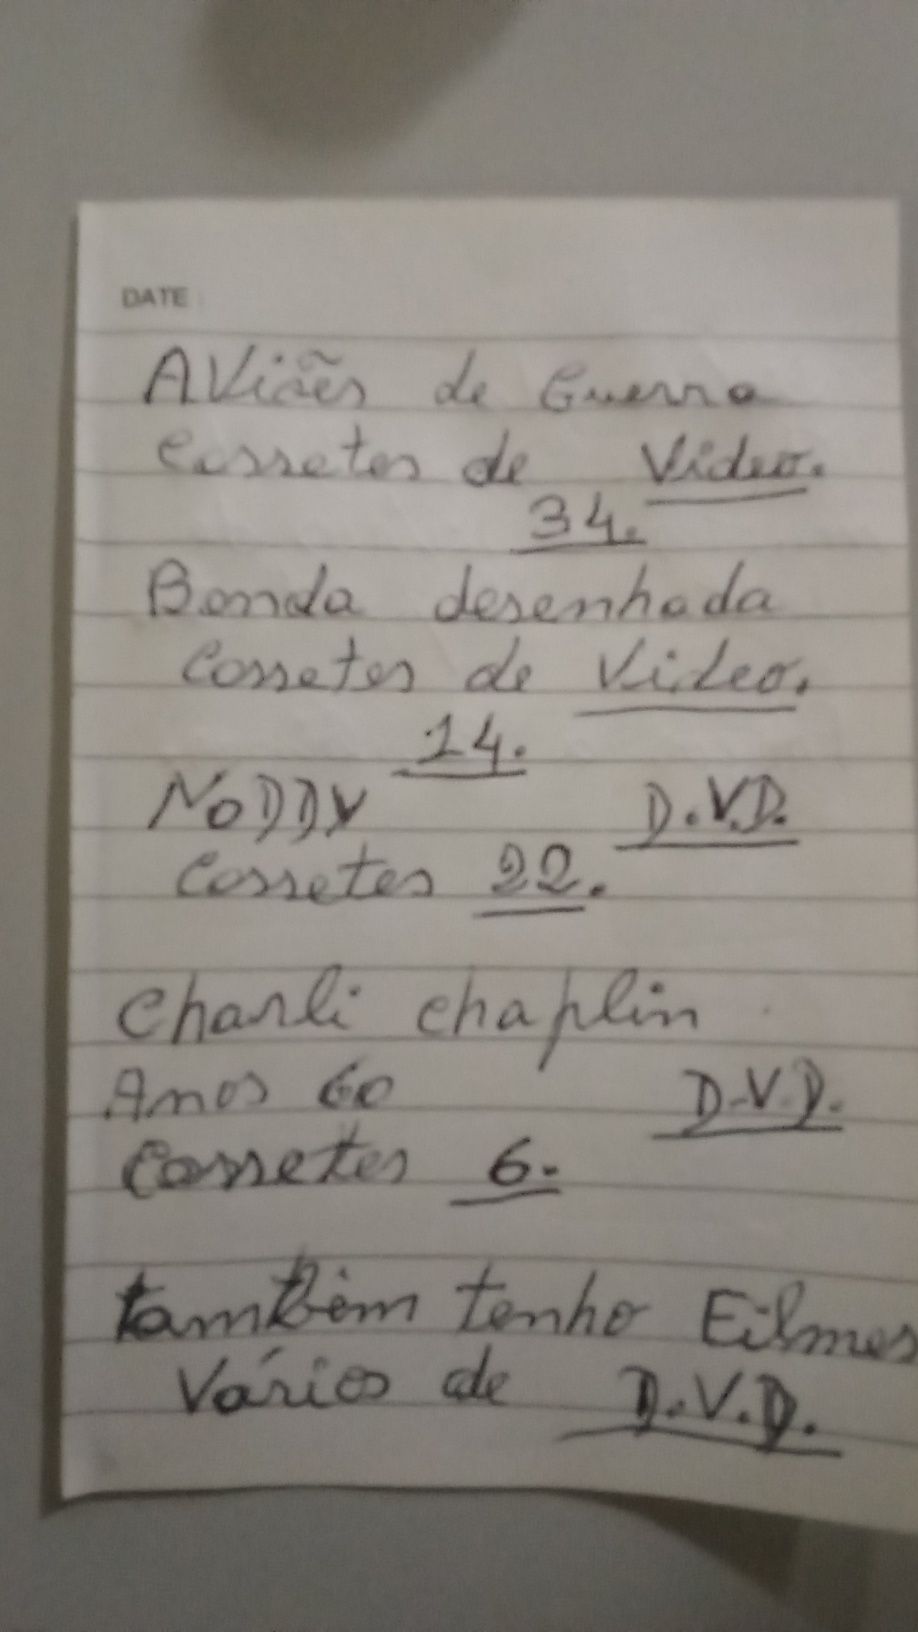 DATE
AViões de Guerra
Cassetes de Video.
34.
Banda desenhada
Cassetes de Video.
14.
NoDDy D.V.D.
Cassetes 22.
Charli chaplin
Anos 60 D.V.D.
Cassetes 6.
também tenho Filmes
Vários de D.V.D.